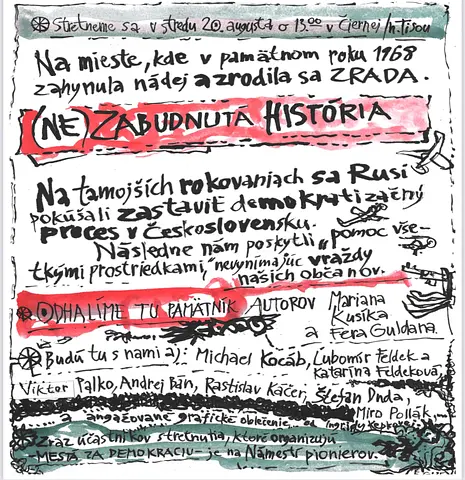 Stretneme sa v stredu 20. augusta o 13.00 v Čiernej n/Tisou
Na mieste, kde v pamätnom roku 1968
zahynula nádej a zrodila sa ZRADA.
(NE)ZABUDNUTÁ HISTÓRIA
Na tamojších rokovaniach sa Rusi
pokúšali zastaviť demokratizačný
proces v Československu.
Následne nám poskytli „pomoc vše-
tkými prostriedkami," nevynímajúc vraždy
našich občanov.
ODHALÍME TU PAMÄTNÍK AUTOROV Mariana
Kusika
a Fera Guldana.
Budú tu s nami aj: Michael Kocáb, Ľubomír Feldek a
Katarína Feldeková,
Viktor Palko, Andrej Bán, Rastislav Káčer, Štefan
Miro Pollák, ...
... a angažované grafické oblečenie... od Ingridy
Zraz účastníkov stretnutia, ktoré organizujú
-MESTÁ ZA DEMOKRACIU- je na Námestí pionierov.